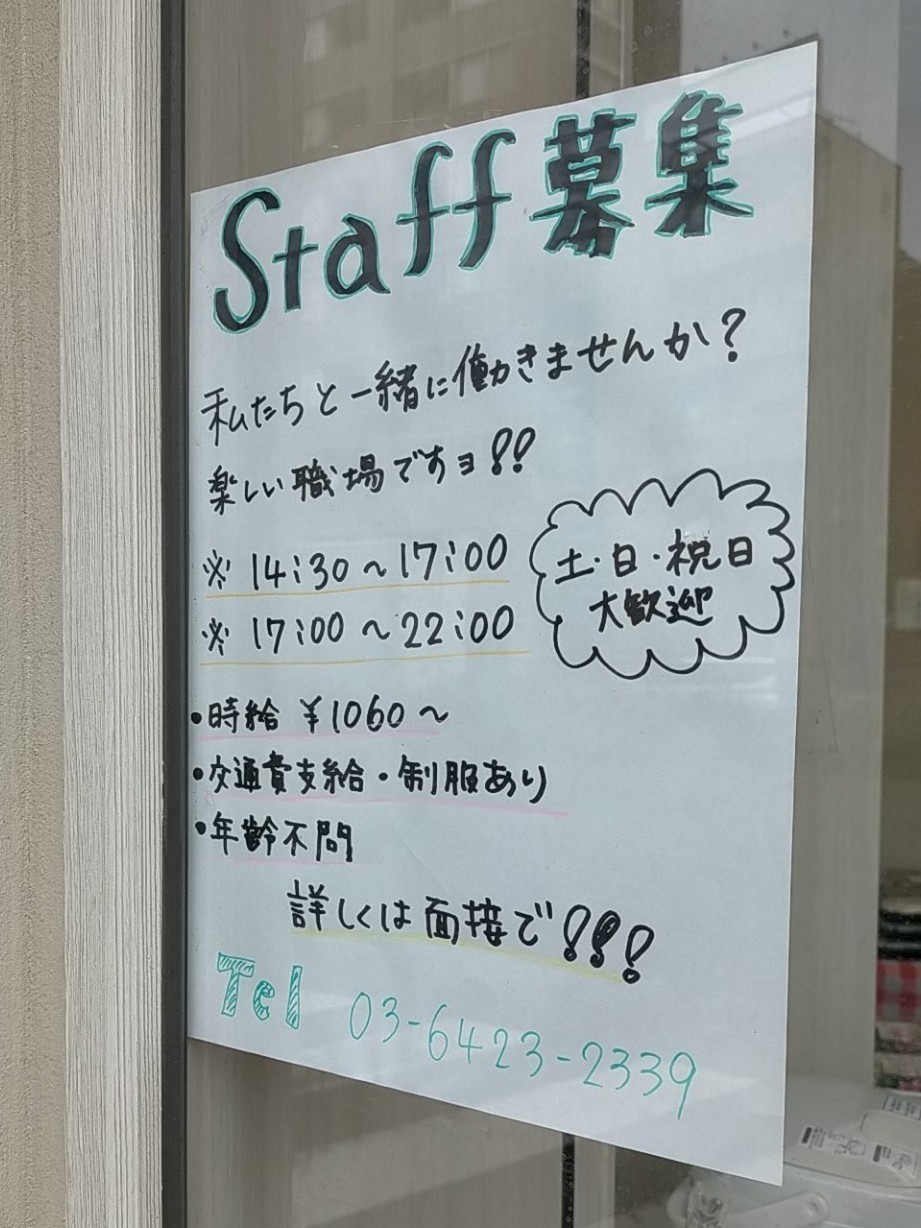 Staff募集
私たちと一緒に働きませんか?
楽しい職場ですヨ!!
※ 14:30～17:00
※ 17:00～22:00
土・日・祝日
大歓迎
・時給 ¥1060～
・交通費支給・制服あり
・年齢不問
詳しくは面接で!!!
Tel 03-6423-2339